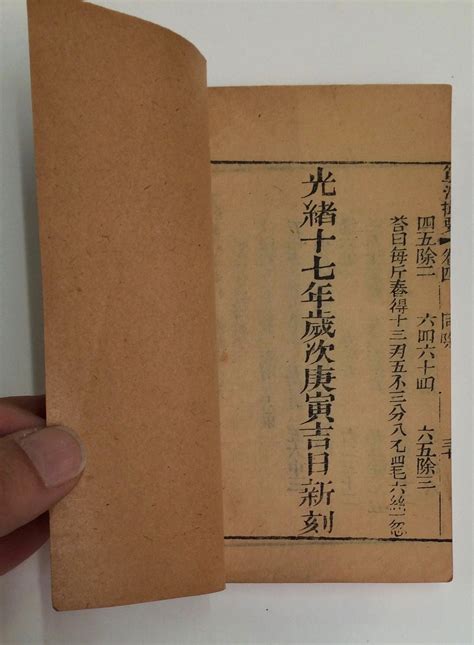 算法 卷四 三十
四五除二 六四六十四 六五除三
荅曰每斤春得十三刄五不三分八四毛六絲一忽
光緒十七年歲次庚寅吉日新刻